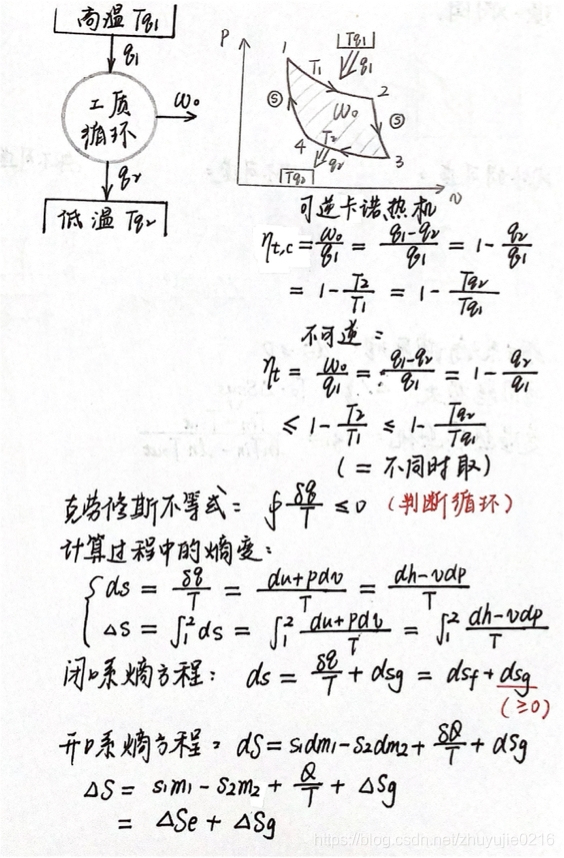 高温 Tq₁
q₁
工质
循环
w₀
q₂
低温 Tq₂
P
1
T₁
Tq₁
q₁
2
ⓢ
w₀
ⓢ
4
T₂
q₂
3
Tq₂
v
可逆卡诺热机
ηt,c = w₀/q₁ = (q₁-q₂)/q₁ = 1 - q₂/q₁
= 1 - T₂/T₁ = 1 - Tq₂/Tq₁
不可逆：
ηt = w₀/q₁ = (q₁-q₂)/q₁ = 1 - q₂/q₁
≤ 1 - T₂/T₁ ≤ 1 - Tq₂/Tq₁
(= 不同时取)
克劳修斯不等式： ∮ δq/T ≤ 0 (判断循环)
计算过程中的熵变：
ds = δq/T = (du+pdv)/T = (dh-vdp)/T
Δs = ∫₁² ds = ∫₁² (du+pdv)/T = ∫₁² (dh-vdp)/T
闭口系熵方程： ds = δq/T + dsg = dsf + dsg
(≥0)
开口系熵方程： dS = s₁dm₁ - s₂dm₂ + δQ/T + dSg
ΔS = s₁m₁ - s₂m₂ + Q/T + ΔSg
= ΔSe + ΔSg
https://blog.csdn.net/zhuyujie0216